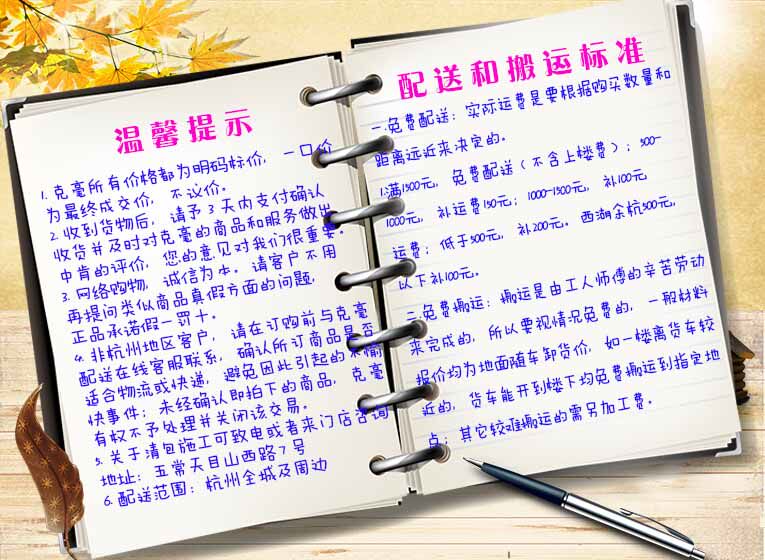 温馨提示
1. 克毫所有价格都为明码标价，一口价
为最终成交价，不议价。
2. 收到货物后，请予3天内支付确认
收货并及时对克毫的商品和服务做出
中肯的评价，您的意见对我们很重要。
3. 网络购物，诚信为本。请客户不用
再提问类似商品真假方面的问题，
正品承诺假一罚十。
4. 非杭州地区客户，请在订购前与克毫
配送在线客服联系，确认所订商品是否
适合物流或快递，避免因此引起的不愉
快事件；未经确认即拍下的商品，克毫
有权不予处理并关闭该交易。
5. 关于清包施工可致电或者来门店咨询
地址：五常天目山西路7号
6. 配送范围：杭州全城及周边
配送和搬运标准
一.免费配送：实际运费是要根据购买数量和
距离远近来决定的。
1.满1500元，免费配送（不含上楼费）；500-
1000元，补运费150元；1000-1500元，补100元
运费；低于500元，补200元。西湖余杭500元，
以下补100元。
二.免费搬运：搬运是由工人师傅的辛苦劳动
来完成的，所以要视情况免费的，一般材料
报价均为地面随车卸货价，如一楼离货车较
近的，货车能开到楼下均免费搬运到指定地
点；其它较难搬运的需另加工费。